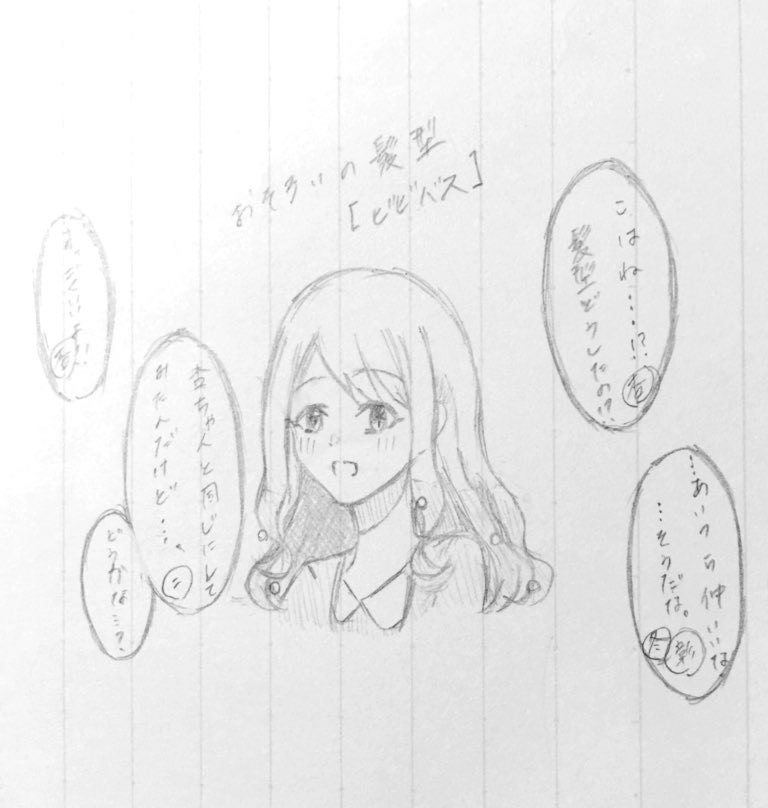 おそろいの髪型
[ビビバス]
こはね…!?
髪型どうしたの!?
杏
杏ちゃんと同じにして
みたんだけど…、
こ
どうかな…?
杏
…あいつら仲いいな
…そうだな。
彰